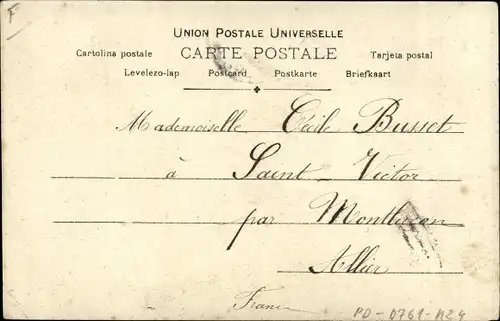 F
UNION POSTALE UNIVERSELLE
Cartolina postale CARTE POSTALE Tarjeta postal
Levelezo-lap Postcard Postkarte Briefkaart
Mademoiselle Cécile Busset
à Saint-Victor
par Montluçon
Allier
France
PD-0761-A24